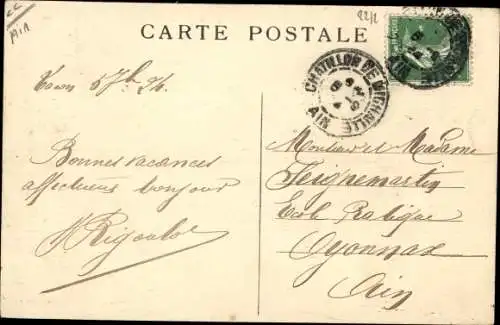 CARTE POSTALE
22/2
CHATILLON DE MICHAILLE
AIN
7bre 24
Bonnes vacances
affectueux bonjour
Rigoulot
Monsieur et Madame
Seignemartin
Ecole Pratique
Oyonnax
Ain